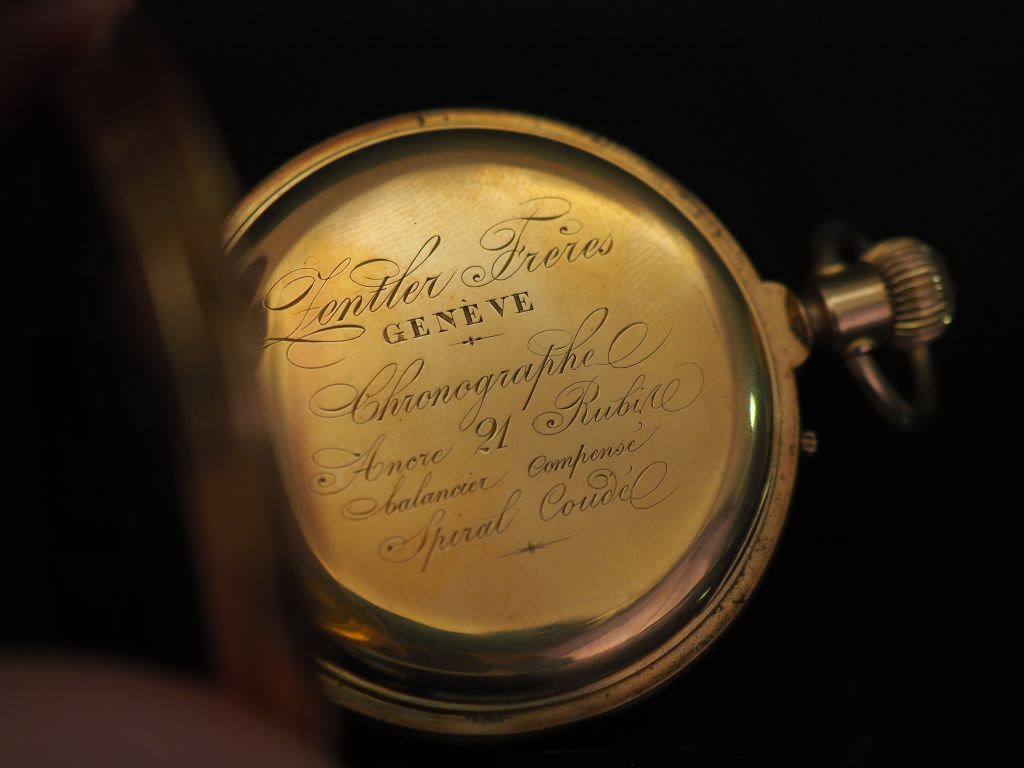 Zentler Frères
GENÈVE
Chronographe
Ancre 21 Rubis
Balancier Compensé
Spiral Coudé